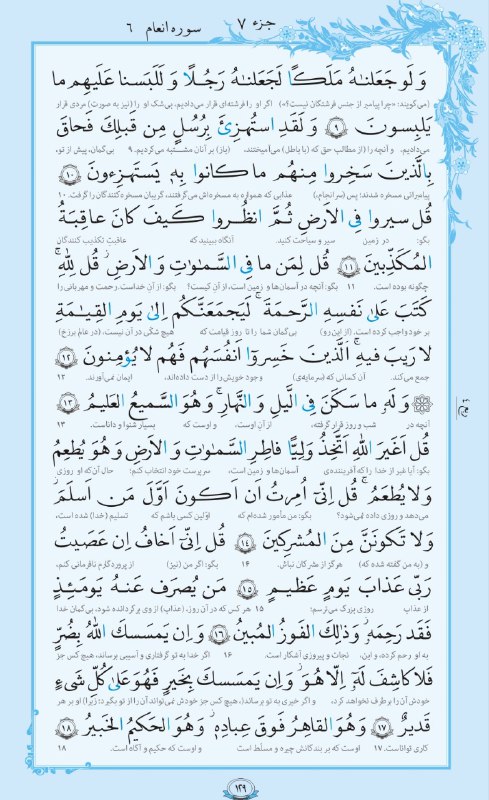 جزء ۷
سوره انعام ۶
وَ لَو جَعَلنٰهُ مَلَكًا لَجَعَلنٰهُ رَجُلًا وَ لَلَبَسنا عَلَيهِم ما
(می‌گویند: «چرا پیامبر از جنس فرشتگان نیست؟») اگر او را فرشته‌ای قرار می‌دادیم، بی‌شک او را (نیز به صورت) مردی قرار
يَلبِسونَ ﴿۹﴾ وَ لَقَدِ استُهزِئَ بِرُسُلٍ مِن قَبلِكَ فَحاقَ
می‌دادیم. و آنچه را (از مطالب حق که (با باطل) می‌آمیختند، (باز) بر آنان مشتبه می‌کردیم. ۹ بی‌گمان، پیش از تو،
بِالَّذينَ سَخِروا مِنهُم ما كانوا بِهٖ يَستَهزِءونَ ﴿۱۰﴾
پیامبرانی مسخره شدند؛ پس (سرانجام)، عذابی که همواره به مسخره‌اش می‌گرفتند، گریبان مسخره‌کنندگان را گرفت. ۱۰
قُل سيروا فِي الاَرضِ ثُمَّ انظُروا كَيفَ كانَ عاقِبَةُ
بگو: در زمین سیر و سیاحت کنید. آنگاه ببینید که عاقبت تکذیب کنندگان
المُكَذِّبينَ ﴿۱۱﴾ قُل لِمَن ما فِي السَّمٰوٰتِ وَ الاَرضِ ۖ قُل لِلّٰهِ ۚ
چگونه بوده است. ۱۱ بگو: آنچه در آسمان‌ها و زمین است، از آن کیست؟ بگو: از آنِ خداست. رحمت و مهربانی را
كَتَبَ عَلىٰ نَفسِهِ الرَّحمَةَ ۚ لَيَجمَعَنَّكُم اِلىٰ يَومِ القِيٰمَةِ
بر خود واجب کرده است. (از این رو) بی‌گمان شما را تا روز قیامت که هیچ شکّی در آن نیست، (در عالم برزخ)
لا رَيبَ فيهِ ۚ الَّذينَ خَسِروٓا اَنفُسَهُم فَهُم لا يُؤمِنونَ ﴿۱۲﴾
جمع می‌کند. آن کسانی که (سرمایه‌ی) وجود خویش را از دست داده‌اند، ایمان نمی‌آورند. ۱۲
وَ لَهٗ ما سَكَنَ فِي الَّيلِ وَ النَّهارِ ۚ وَ هُوَ السَّميعُ العَليمُ ﴿۱۳﴾
آنچه در شب و روز قرار گرفته، از آنِ اوست، و اوست که بسیار شنوا و داناست. ۱۳
قُل اَغَيرَ اللهِ اَتَّخِذُ وَلِيًّا فاطِرِ السَّمٰوٰتِ وَ الاَرضِ وَ هُوَ يُطعِمُ
بگو: آیا غیر از خدا را که آفریننده‌ی آسمان‌ها و زمین است، سرپرست خود انتخاب کنم؛ حال آن‌که او روزی
وَ لا يُطعَمُ ۗ قُل اِنّيٓ اُمِرتُ اَن اَكونَ اَوَّلَ مَن اَسلَمَ ۖ
می‌دهد و روزی داده نمی‌شود؟ بگو: من مأمور شده‌ام که اوّلین کسی باشم که تسلیم (خدا) شده است،
وَ لا تَكونَنَّ مِنَ المُشرِكينَ ﴿۱۴﴾ قُل اِنّيٓ اَخافُ اِن عَصَيتُ
و (به من گفته شده که) هرگز از مشرکان نباش. ۱۴ بگو: اگر من (نیز) از پروردگارم نافرمانی کنم،
رَبّي عَذابَ يَومٍ عَظيمٍ ﴿۱۵﴾ مَن يُصرَف عَنهُ يَومَئِذٍ
از عذاب روزی بزرگ می‌ترسم؛ ۱۵ هر کس که در آن روز، (عذاب) از وی برگردانده شود، بی‌گمان خدا
فَقَد رَحِمَهٗ ۚ وَ ذٰلِكَ الفَوزُ المُبينُ ﴿۱۶﴾ وَ اِن يَمسَسكَ اللهُ بِضُرٍّ
به او رحم کرده، و این، نجات و پیروزی آشکار است. ۱۶ اگر خدا به تو گرفتاری و آسیبی برساند، هیچ کس جز
فَلا كاشِفَ لَهٗٓ اِلّا هُوَ ۖ وَ اِن يَمسَسكَ بِخَيرٍ فَهُوَ عَلىٰ كُلِّ شَيءٍ
خودش آن را برطرف نخواهد کرد، و اگر خیری به تو برساند، (هیچ کس جز خودش نمی‌تواند آن را از تو بگیرد؛ زیرا) او بر هر
قَديرٌ ﴿۱۷﴾ وَ هُوَ القاهِرُ فَوقَ عِبادِهٖ ۚ وَ هُوَ الحَكيمُ الخَبيرُ ﴿۱۸﴾
کاری تواناست. ۱۷ اوست که بر بندگانش چیره و مسلّط است و اوست که حکیم و آگاه است. ۱۸
۱۲۹